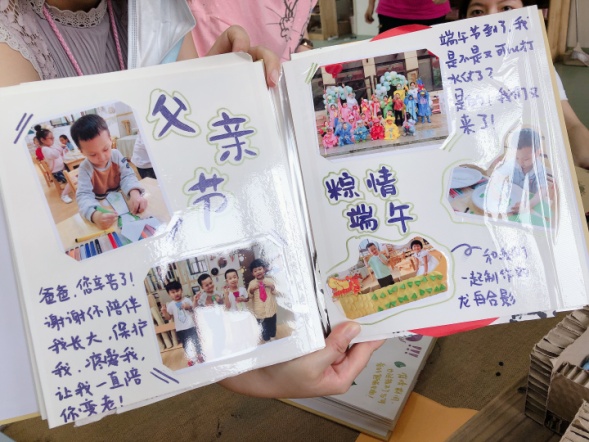 父
亲
节
爸爸,你辛苦了!
谢谢你陪伴
我长大,保护
我,疼爱我,
让我一直陪
你变老!
端午节到了,我
是不是又可以打
水仗了?
我们又
来了!
粽情
端午
和我们
一起制作的
龙舟合影